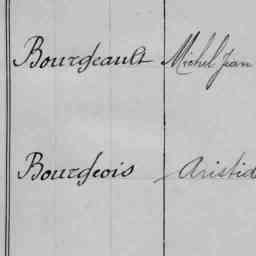 Bourgeault Michel Jean
Bourgeois Aristid